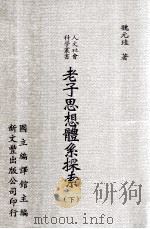 魏元珪 著
人文社會
科學叢書
老子思想體系探索
(下)
國立編譯館主編
新文豐出版公司印行